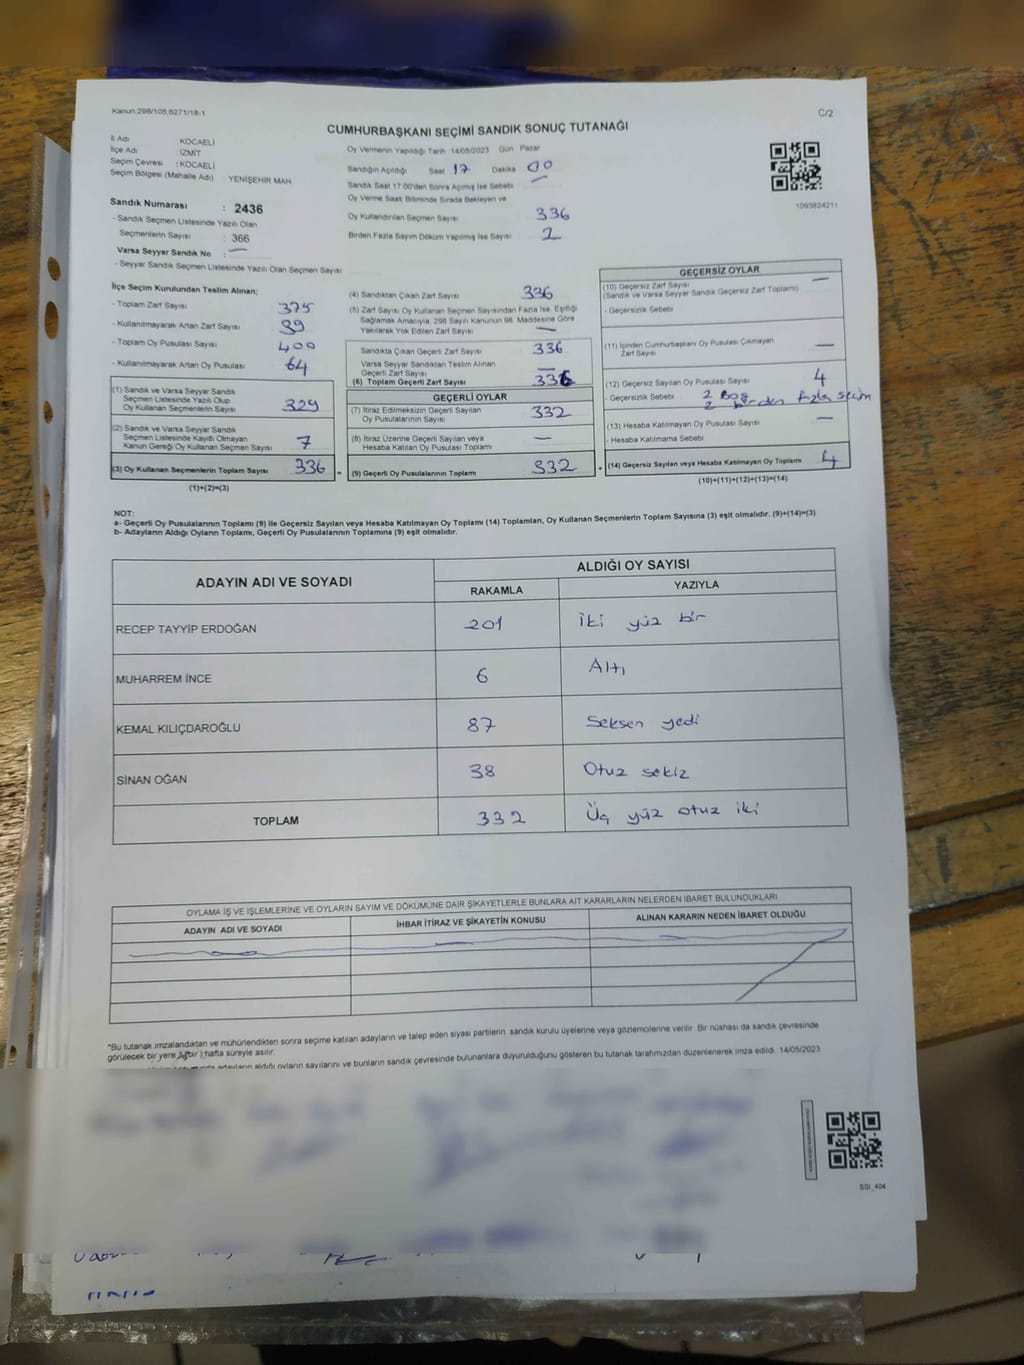 Kanun:298/105,6271/18-1
C/2
CUMHURBAŞKANI SEÇİMİ SANDIK SONUÇ TUTANAĞI
İl Adı : KOCAELİ
İlçe Adı İZMİT
Seçim Çevresi : KOCAELİ
Seçim Bölgesi (Mahalle Adı) : YENİŞEHİR MAH.
Sandık Numarası : 2436
- Sandık Seçmen Listesinde Yazılı Olan
Seçmenlerin Sayısı : 366
Varsa Seyyar Sandık No : —
- Seyyar Sandık Seçmen Listesinde Yazılı Olan Seçmen Sayısı
Oy Vermenin Yapıldığı Tarih 14/05/2023 Gün Pazar
Sandığın Açıldığı Saat 17 Dakika 00
Sandık Saat 17:00'den Sonra Açılmış İse Sebebi —
Oy Verme Saati Bitiminde Sırada Bekleyen ve
Oy Kullandırılan Seçmen Sayısı 336
Birden Fazla Sayım Döküm Yapılmış İse Sayısı 2
1093824211
İlçe Seçim Kurulundan Teslim Alınan;
- Toplam Zarf Sayısı 375
- Kullanılmayarak Artan Zarf Sayısı 39
- Toplam Oy Pusulası Sayısı 400
- Kullanılmayarak Artan Oy Pusulası 64
(1) Sandık ve Varsa Seyyar Sandık
Seçmen Listesinde Yazılı Olup
Oy Kullanan Seçmenlerin Sayısı 329
(2) Sandık ve Varsa Seyyar Sandık
Seçmen Listesinde Kayıtlı Olmayan
Kanun Gereği Oy Kullanan Seçmen Sayısı 7
(3) Oy Kullanan Seçmenlerin Toplam Sayısı 336 =
(1)+(2)=(3)
(4) Sandıktan Çıkan Zarf Sayısı 336
(5) Zarf Sayısı Oy Kullanan Seçmen Sayısından Fazla İse, Eşitliği
Sağlamak Amacıyla; 298 Sayılı Kanunun 98. Maddesine Göre
Yakılarak Yok Edilen Zarf Sayısı —
Sandıkta Çıkan Geçerli Zarf Sayısı 336
Varsa Seyyar Sandıktan Teslim Alınan
Geçerli Zarf Sayısı —
(6) Toplam Geçerli Zarf Sayısı 336
GEÇERLİ OYLAR
(7) İtiraz Edilmeksizin Geçerli Sayılan
Oy Pusulalarının Sayısı 332
(8) İtiraz Üzerine Geçerli Sayılan veya
Hesaba Katılan Oy Pusulası Toplamı —
(9) Geçerli Oy Pusulalarının Toplamı 332 +
GEÇERSİZ OYLAR
(10) Geçersiz Zarf Sayısı —
(Sandık ve Varsa Seyyar Sandık Geçersiz Zarf Toplamı)
- Geçersizlik Sebebi
(11) İçinden Cumhurbaşkanı Oy Pusulası Çıkmayan
Zarf Sayısı —
(12) Geçersiz Sayılan Oy Pusulası Sayısı 4
- Geçersizlik Sebebi 2 Boş
2 birden fazla seçim
(13) Hesaba Katılmayan Oy Pusulası Sayısı —
- Hesaba Katılmama Sebebi
(14) Geçersiz Sayılan veya Hesaba Katılmayan Oy Toplamı 4
(10)+(11)+(12)+(13)=(14)
NOT:
a- Geçerli Oy Pusulalarının Toplamı (9) ile Geçersiz Sayılan veya Hesaba Katılmayan Oy Toplamı (14) Toplamları, Oy Kullanan Seçmenlerin Toplam Sayısına (3) eşit olmalıdır. (9)+(14)=(3)
b- Adayların Aldığı Oyların Toplamı, Geçerli Oy Pusulalarının Toplamına (9) eşit olmalıdır.
ADAYIN ADI VE SOYADI
ALDIĞI OY SAYISI
RAKAMLA YAZIYLA
RECEP TAYYİP ERDOĞAN 201 İki yüz bir
MUHARREM İNCE 6 Altı
KEMAL KILIÇDAROĞLU 87 Seksen yedi
SİNAN OĞAN 38 Otuz sekiz
TOPLAM 332 Üç yüz otuz iki
OYLAMA İŞ VE İŞLEMLERİNE VE OYLARIN SAYIM VE DÖKÜMÜNE DAİR ŞİKAYETLERLE BUNLARA AİT KARARLARIN NELERDEN İBARET BULUNDUKLARI
ADAYIN ADI VE SOYADI İHBAR İTİRAZ VE ŞİKAYETİN KONUSU ALINAN KARARIN NEDEN İBARET OLDUĞU
*Bu tutanak imzalandıktan ve mühürlendikten sonra seçime katılan adayların ve talep eden siyasi partilerin sandık kurulu üyelerine veya gözlemcilerine verilir. Bir nüshası da sandık çevresinde
görülecek bir yere 1(bir) hafta süreyle asılır.
adayların aldığı oyların sayılarını ve bunların sandık çevresinde bulunanlara duyurulduğunu gösteren bu tutanak tarafımızdan düzenlenerek imza edildi. 14/05/2023
SSİ_404